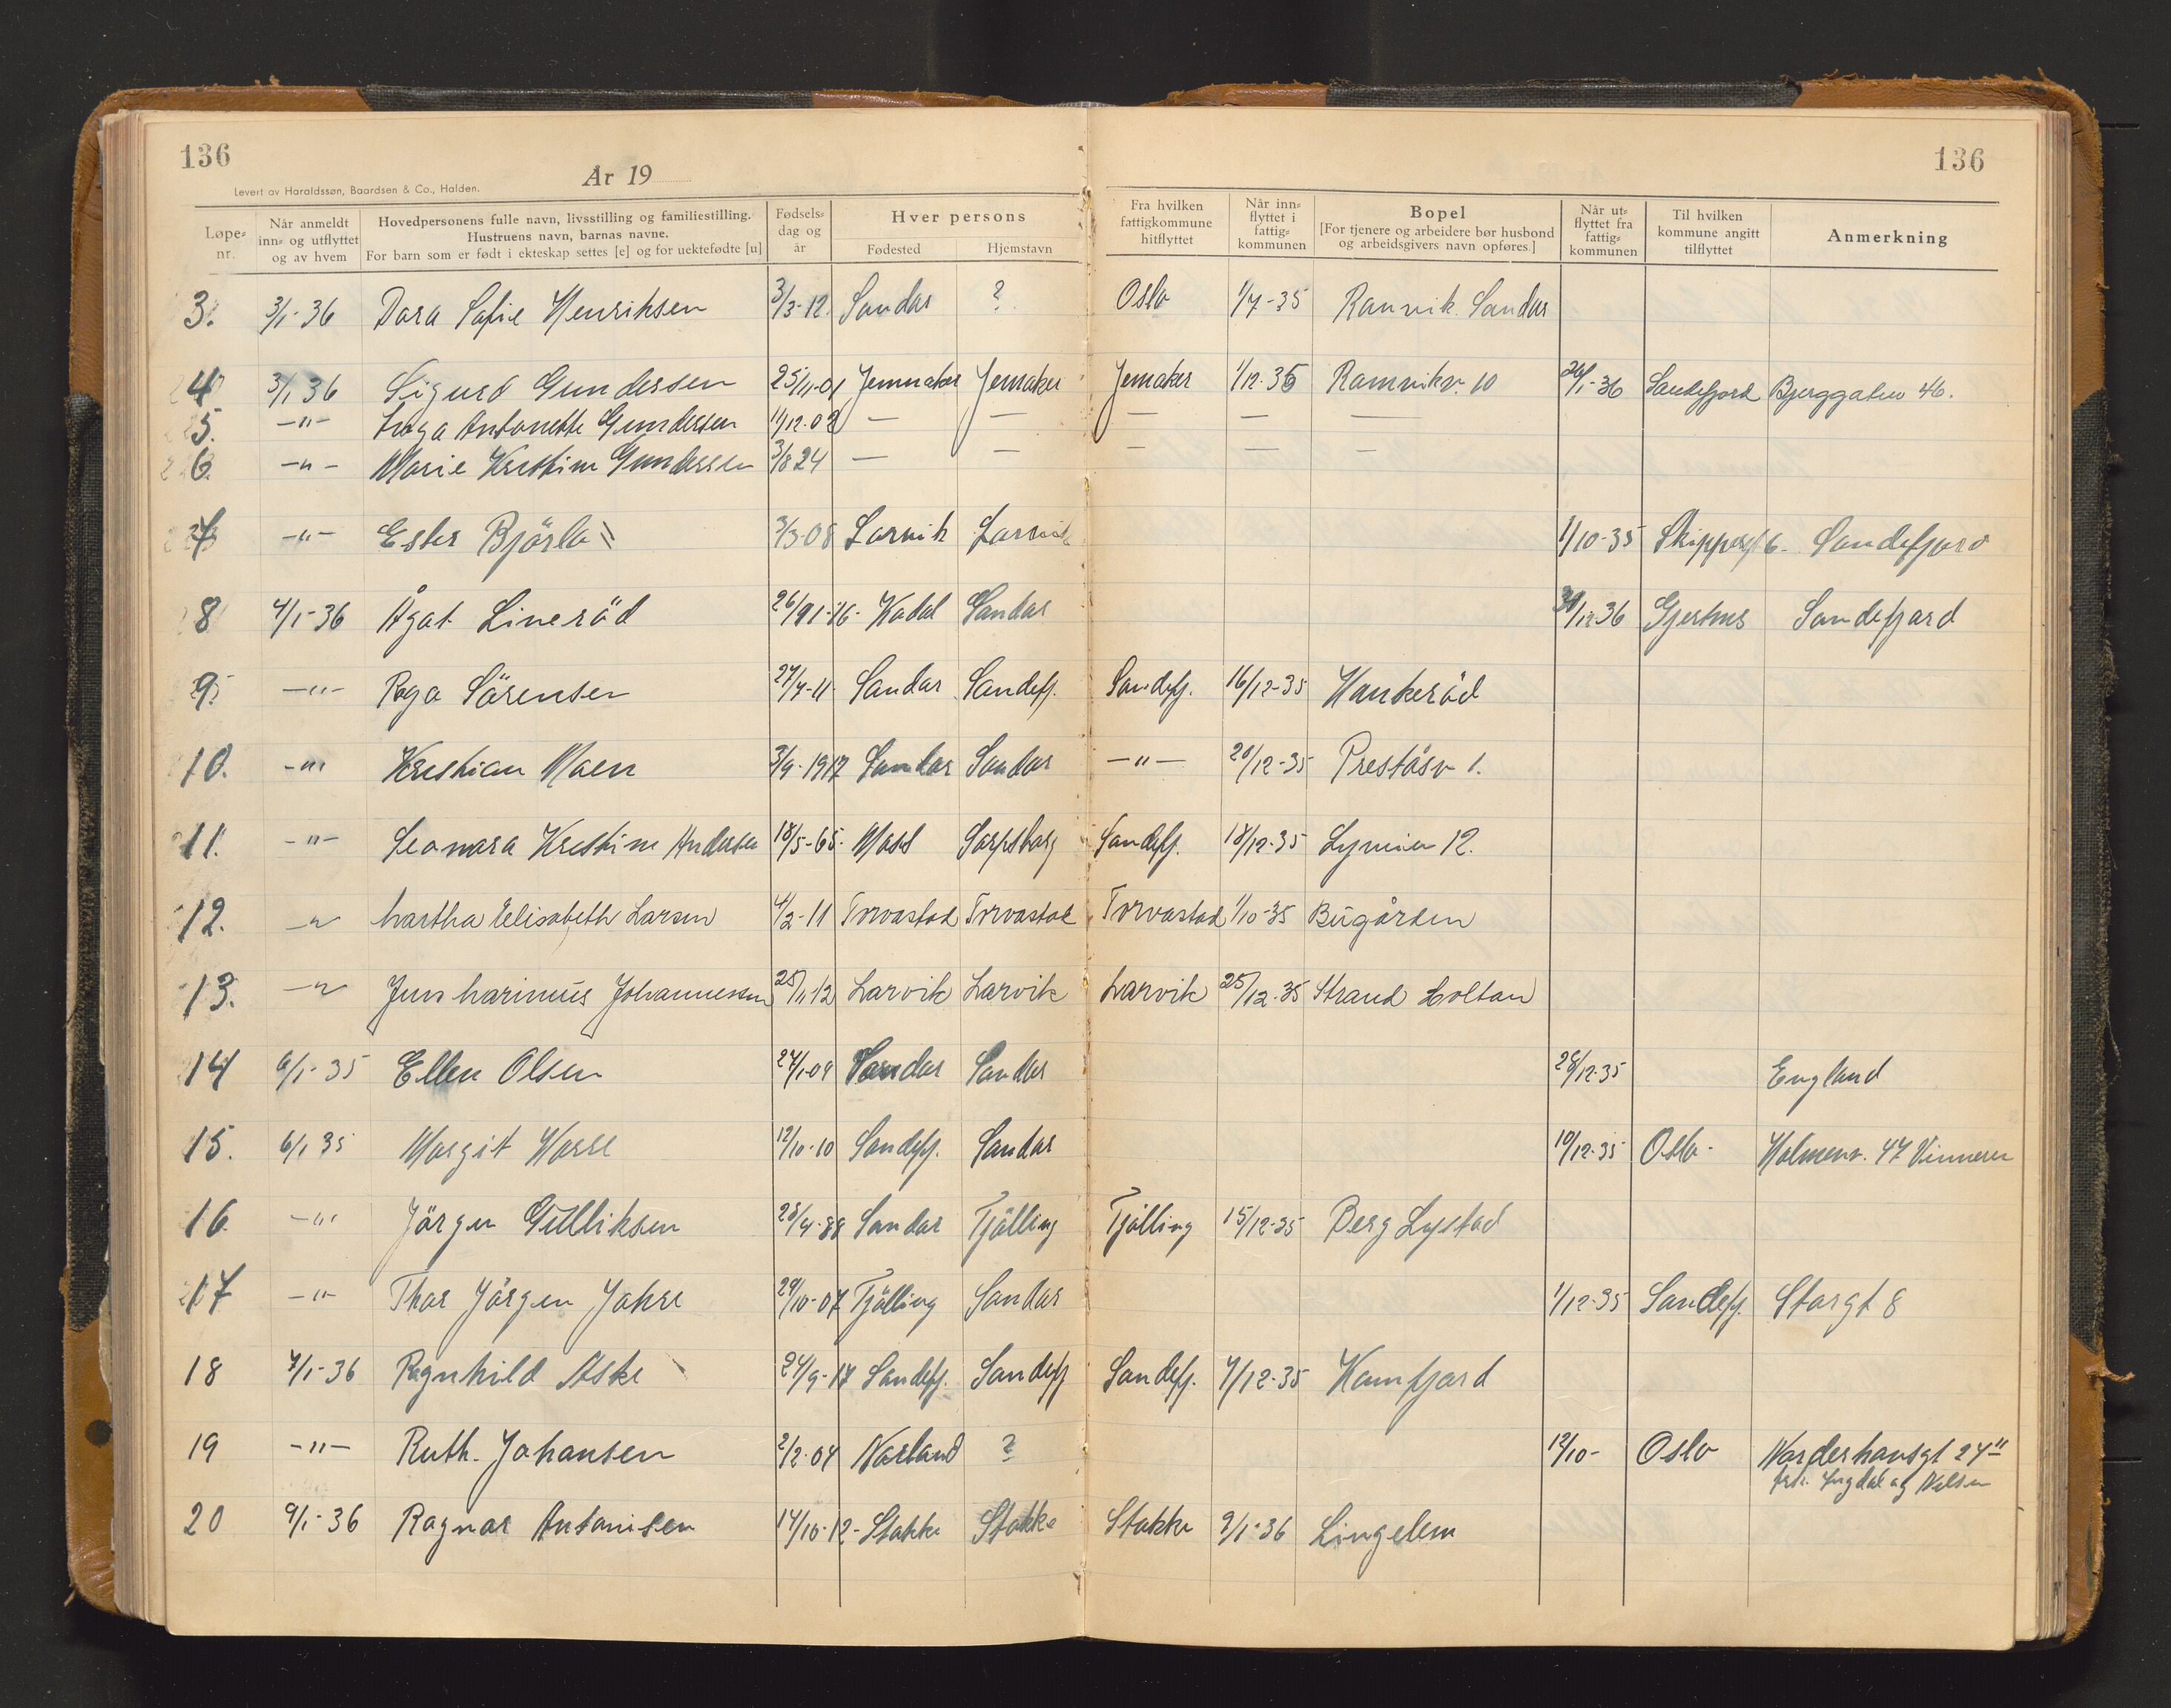 136
136
Levert av Haraldssøn, Baardsen & Co., Halden.
År 19
Løpe-nr.
Når anmeldt inn- og utflyttet og av hvem
Hovedpersonens fulle navn, livsstilling og familiestilling. Hustruens navn, barnas navne. For barn som er født i ekteskap settes [e] og for uektefødte [u]
Fødsels-dag og år
Hver persons
Fødested
Hjemstavn
Fra hvilken fattigkommune hitflyttet
Når inn-flyttet i fattig-kommunen
Bopel [For tjenere og arbeidere bør husbond og arbeidsgivers navn opføres]
Når ut-flyttet fra fattig-kommunen
Til hvilken kommune angitt tilflyttet
Anmerkning
3. 3/1-36 Dora Sofie Henriksen 3/3-12. Sandar ? Oslo 1/7-35 Ranvik. Sandar
4 3/1 36 Sigurd Gundersen 25/11-01 Jernmaker Jernaker Jernaker 1/12-35 Ranvikv. 10 -36 Sandefjord Bjerggaten 46.
5. -"- Antonette Gundersen 11/12.02 — — — — —
6. -"- Marie Kristine Gundersen 3/8 24 — — — — —
7 -"- Ester 3/3-08 Larvik Larvik 1/10-35 Skippergt 6. Sandefjord
8 4/1-36 Ågot Lineröd Kodal Sandar /12-36 Sandefjord
9. -"- Sörensen 27/7-11. Sandar Sandefj. Sandefj. 16/12-35 Haukeröd
10. -"- Kristian Moen 3/9-1917 Sandar Sandar -"- 20/12-35 Preståsv 1.
11. -"- Leonora Kristine Andersen 18/5-65. Moss Sarpsborg Sandefj. 18/12-35 12.
12. -"- Martha Elisabeth Larsen 4/2-11 Torvastad Torvastad Torvastad 1/10-35 Bugården
13. -"- Jens Marinius Johannessen 25/11 12 Larvik Larvik Larvik 25/12.35 Strand Holtan
14 6/1-35 Ellen Olsen 27/1-09 Sandar Sandar 28/12-35 England
15. 6/1 35 Margit 12/10-10 Sandefj. Sandar 10/12-35 Oslo- Holmenv. 47 Vinneren
16. -"- Jörgen Gulliksen 28/4-88 Sandar Tjölling Tjölling 15/12-35 Berg Lystad
17 -"- Thor Jörgen Jahre 29/10-07 Tjölling Sandar 1/12-35 Sandefj. Storgt 8
18 7/1-36 Ragnhild Aske 24/9-17 Sandefj. Sandefj Sandefj. 7/12-35 Kamfjord
19 -"- Ruth. Johansen 2/2-04 Norland ? 12/10- Oslo Norderhovsgt 24"
og Nilsen
20 9/1-36 Ragnar Antonisen 14/10-12- Stokke Stokke Stokke 9/1-36 Lingelem